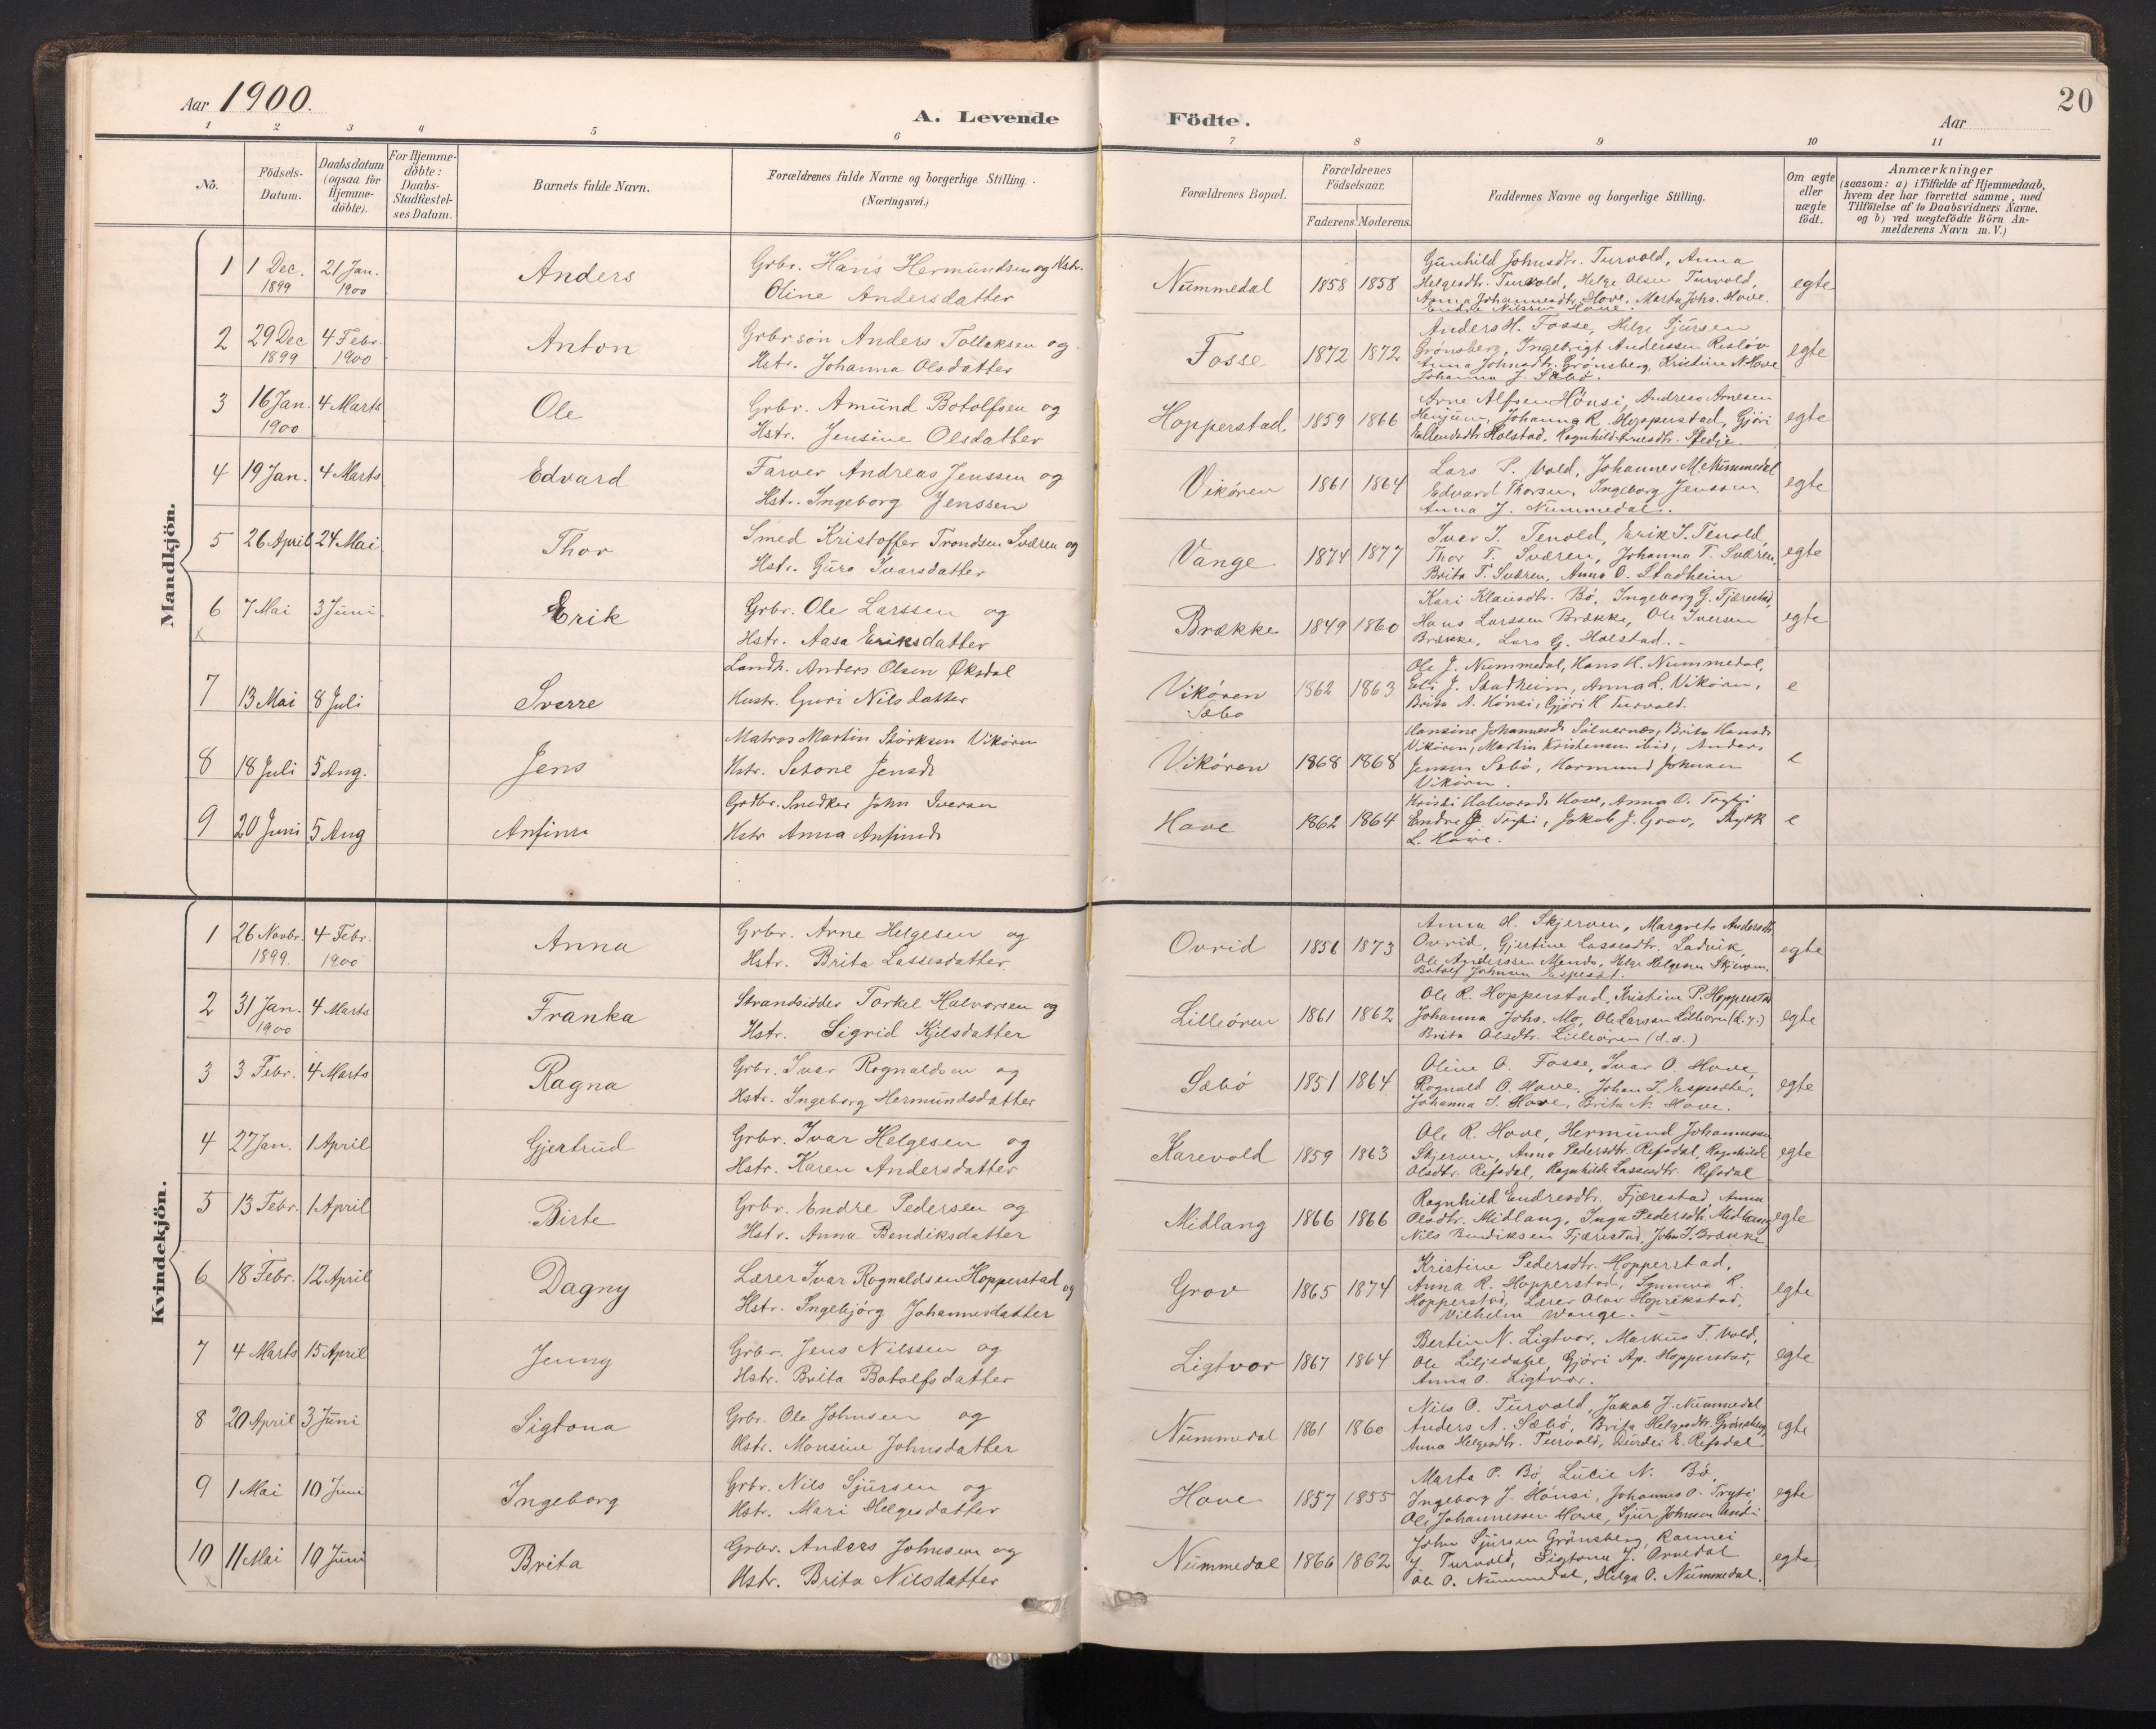 Aar 1900.
A. Levende Födte.
Aar
20
1 2 3 4 5 6 7 8 9 10 11
No. Födsels-Datum. Daabsdatum (ogsaa for Hjemme-döbte). For Hjemme-döbte: Daabs-Stadfæstel-ses Datum. Barnets fulde Navn. Forældrenes fulde Navne og borgerlige Stilling. (Næringsvei.) Forældrenes Bopæl. Forældrenes Födselsaar. Faderens. Moderens. Faddernes Navne og borgerlige Stilling. Om ægte eller uægte födt. Anmærkninger (saasom: a) i Tilfælde af Hjemmedaab, hvem der har forrettet samme, med Tilföielse af to Daabsvidners Navne. og b) ved uægtefödte Börn An-melderens Navn m. V.)
Mandkjön.
1 1 Dec. 1899 21 Jan. 1900 Anders Grbr. Hans Hermundsen og Hstr. Oline Andersdatter Nummedal 1858 1858 Gunhild Johnsdtr. Turvold, Anna
Helgesdtr. Turvold, Helge Olsen Turvold,
Anna Johannesdtr. Hove, Marta Johs. Hove.
Endre Nilssen Hove. egte
2 29 Dec 1899 4 Febr. 1900 Anton Grbr søn Anders Tollaksen og Hstr. Johanna Olsdatter Fosse 1872 1872 Anders H. Fosse, Helge Sjursen
Grønsberg, Ingebrigt Anderssen Risløv
Anna Johnsdtr. Grønsberg, Kristine N. Hove
Johanna J. Sæbø. egte
3 16 Jan. 1900 4 Marts Ole Grbr. Amund Botolfsen og Hstr. Jensine Olsdatter Hopperstad 1859 1866 Arne Alfsen Hønsi, Andreas Arnesen
Henjum, Johanna R. Hopperstad, Gjøri
Ellendsdtr. Holstad, Ragnhild Arnesdtr. Stedje. egte
4 19 Jan. 4 Marts Edvard Farver Andreas Jenssen og Hstr. Ingeborg Jenssen Vikøren 1861 1864 Lars P. Vold, Johannes M. Nummedal
Edvard Thorsen, Ingeborg Jenssen.
Anna J. Nummedal. egte
5 26 April 24 Mai Thor Smed Kristoffer Trondsen Sværen og Hstr. Guro Ivarsdatter Vange. 1874 1877 Ivar I. Tenold, Erik I. Tenold,
Thor T. Sværen, Johanna T. Sværen,
Brita T. Sværen, Anna O. Stadheim egte
6 x 7 Mai 3 Juni Erik Grbr. Ole Larssen og Hstr. Aasa Eriksdatter Brække 1849 1860 Kari Klausdtr. Bø, Ingeborg G. Fjærestad,
Hans Larssen Brække, Ole Iversen
Brække, Lars G. Holstad. egte
7 13 Mai 8 Juli Sverre Landh. Anders Olsen Øksdal Hustr. Guri Nilsdatter Vikøren Sæbø 1862 1863 Ole J. Nummedal, Hans H. Nummedal,
Eli J. Stadheim, Anna L. Vikøren,
Brita A. Hønsi, Gjøri H. Turvold. e
8 18 Juli 5 Aug. Jens Matros Martin Størksen Vikøren Hstr. Setone Jensdr Vikøren 1868 1868 Hansine Johannesdr Sølvernæs, Brita Hansdr
Vikøren, Martin Kristensen ibid, Anders
Jensen Sæbø, Hermund Johnsen
Vikøren. e
9 20 Juni 5 Aug Anfinn Grdbr. Snedker John Iversen Hstr Anna Anfinsdr Hove 1862 1864 Kristi Halvorsdr Hove, Anna O. Tryti
Endre J. Tryti, Jakob J. Grov,
L. Hove. e
Kvindekjön.
1 26 Novbr. 1899. 4 Febr. 1900 Anna Grbr. Arne Helgesen og Hstr. Brita Lassesdatter Ovrid 1856 1873 Anna H. Skjerven, Margreta Andersdtr.
Ovrid, Gjertine Lassesdtr. Ladvik,
Ole Anderssen Mende, Helge Helgesen Skjerven.
Botolf Johnsen Espeset. egte
2 31 Jan. 1900 4 Marts Franka Strandsidder Torkel Halvorsen og Hstr. Sigrid Kjelsdatter Lilleören 1861 1862 Ole R. Hopperstad, Kristine P. Hopperstad
Johanna Johs. Mo, Ole Larssen Lilleøren (d.y.)
Brita Olsdtr. Lilleøren (d.æ.) egte
3 3 Febr. 4 Marts Ragna Grbr. Ivar Rognaldsen og Hstr. Ingeborg Hermundsdatter Sæbö 1851 1864 Oline O. Fosse, Ivar O. Hove,
Rognald O. Hove, Johan I.
Johanna I. Hove, Brita N. Hove. egte
4 27 Jan. 1 April Gjertrud Grbr. Ivar Helgesen og Hstr. Karen Andersdatter Karevold 1859 1863 Ole R. Hove, Hermund Johannessen
Skjerven, Anna Pedersdtr. Refsdal, Ragnhilde
Olsdtr. Refsdal, Ragnhilde Lassesdtr. Refsdal egte
5 13 Febr. 1 April Birte Grbr. Endre Pedersen og Hstr. Anna Bendiksdatter Midlang 1866 1866 Ragnhild Endresdtr. Fjærestad, Anna
Olsdtr. Midlang, Inga Pedersdtr. Midlang
Nils Bendiksen Fjærestad, John I. Brække egte
6 18 Febr. 12 April Dagny Lærer Ivar Rognaldsen Hopperstad og Hstr. Ingebjörg Johannesdatter Grov 1865 1874 Kristine Pedersdtr. Hopperstad,
Anna R. Hopperstad, Synneva R.
Hopperstad, Lærer Olav Hoprekstad,
Vilhelm Wange. egte
7 4 Marts 15 April Jenny Grbr. Jens Nilssen og Hstr. Brita Botolfsdatter Ligtvor 1867 1864 Bertin N. Ligtvor, Markus T. Vold,
Ole Liljedahl, Gjøri Ap. Hopperstad,
Anna O. Ligtvor. egte
8 20 April 3 Juni Sigtona Grbr. Ole Johnsen og Hstr. Monsine Johnsdatter Nummedal 1861 1860 Nils O. Turvold, Jakob J. Nummedal
Anders A. Sæbø, Brita Helgesdtr. Grønsberg,
Anna Helgesdtr. Turvold, Durdei E. Refsdal. egte
9 1 Mai 10 Juni Ingeborg Grbr. Nils Sjursen og Hstr. Mari Helgesdatter Hove 1857 1855 Marta P. Bø, Lucie N. Bø,
Ingeborg J. Hønsi, Johannes O. Tryti
Ole Johannessen Hove, Sjur Johnsen egte
10 x 11 Mai 10 Juni Brita Grbr. Anders Johnsen og Hstr. Brita Nilsdatter Nummedal 1866 1862 John Sjursen Grønsberg, Rannei
J Turvold, Sigtona J. Orvedal
Ole O. Nummedal, Helga O. Nummedal. egte